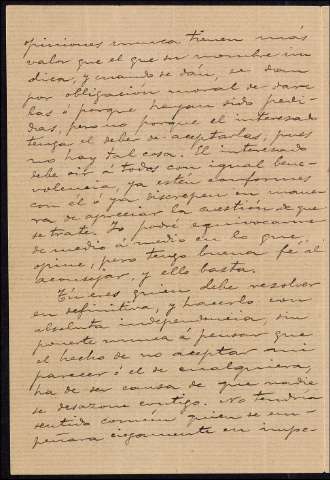 opiniones nunca tienen más
valor que el que su nombre in
dica, y cuando se dán, se dan
por obligación moral de dar
las ó porque hayan sido pedi-
das, pero no porque el interesado
tenga el deber de aceptarlas, pues
no hay tal cosa. El interesado
debe oir á todos con igual bene-
volencia, ya estén conformes
con él ó ya discrepen en mane
ra de apreciar la cuestión de que
se trate. Yo podré equivocarme
de medio á medio en lo que
opine, pero tengo buena fe al
aconsejar, y ello basta.
Tú eres quien debe resolver
en definitiva, y hacerlo con
absoluta independencia, sin
ponerte nunca á pensar que
el hecho de no aceptar mi
parecer ó el de cualquiera,
ha de ser causa de que nadie
se desazone contigo. No tendría
sentido común quien se em-
peñara ciegamente en impo-